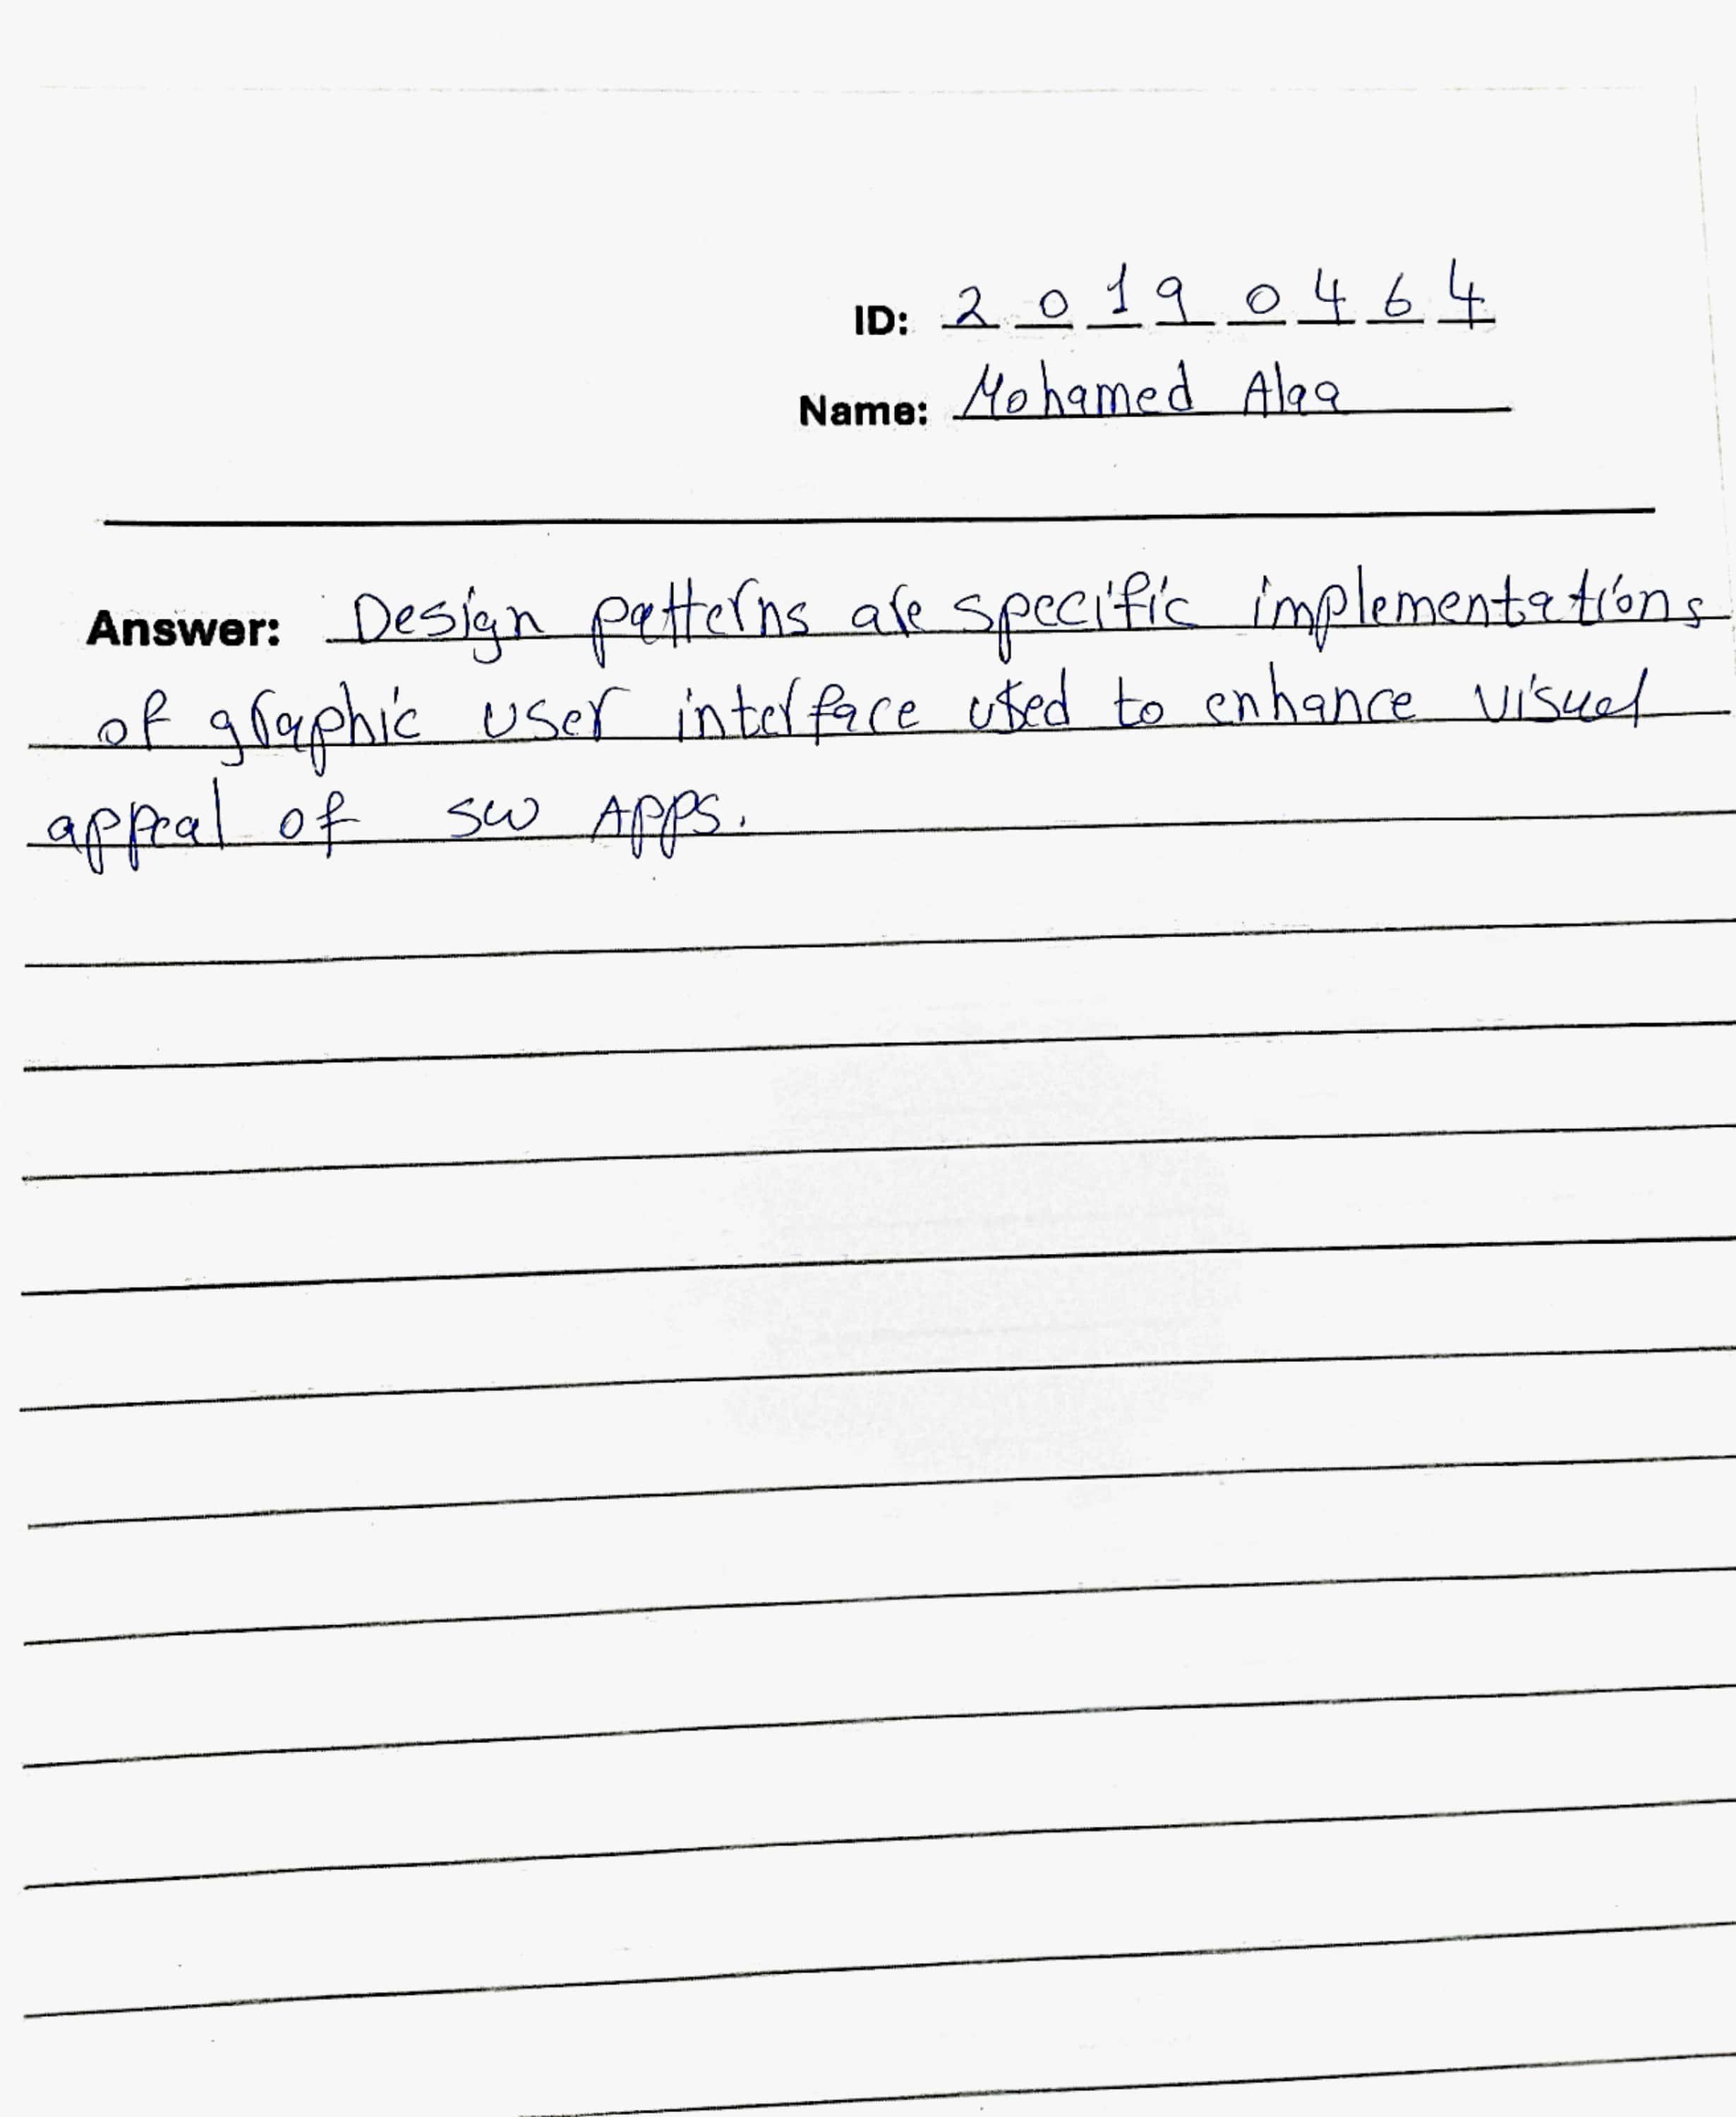 ID: 2 0 1 9 0 4 6 4
Name: Mohamed Alaa
Answer: Design patterns are specific implementations
of graphic user interface used to enhance visual
appeal of sw Apps.